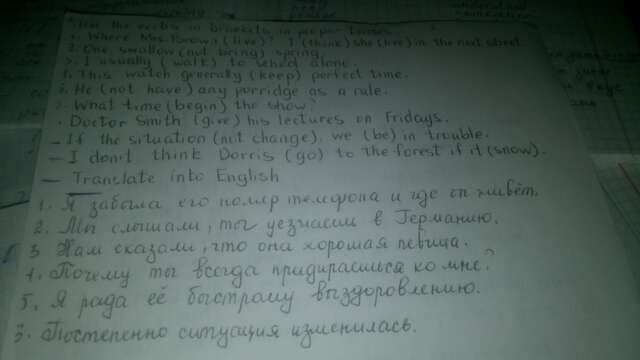 the verbs in brackets in proper tenses
1. Where Mrs. Brown (live)? I (think) she (live) in the next street
2. One swallow (not bring) spring.
3. I usually (walk) to school alone
4. This watch generally (keep) perfect time.
He (not have) any porridge as a rule.
What time (begin) the show?
Doctor Smith (give) his lectures on Fridays.
– If the situation (not change), we (be) in trouble.
– I don't think Dorris (go) to the forest if it (snow).
– Translate into English
1. Я забыла его номер телефона и где он живёт.
2. Мы слышали, ты уезжаешь в Германию.
3 Нам сказали, что она хорошая певица.
4. Почему ты всегда придираешься ко мне?
5. Я рада её быстрому выздоровлению.
Постепенно ситуация изменилась.